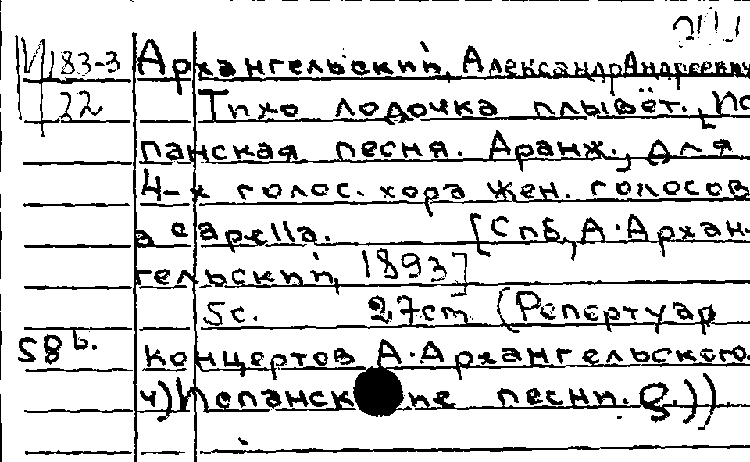 М183-3 Архангельский, Александр Андреевич
22 Тихо лодочка плывёт. Ис
панская песня. Аранж., для
4-х голос. хора жен. голосов
a capella. [Спб, А. Архан-
гельский, 1893]
5с. 27cm (Репертуар
58ь. концертов А. Архангельского.
ч) Испанск ие песни. 8.))